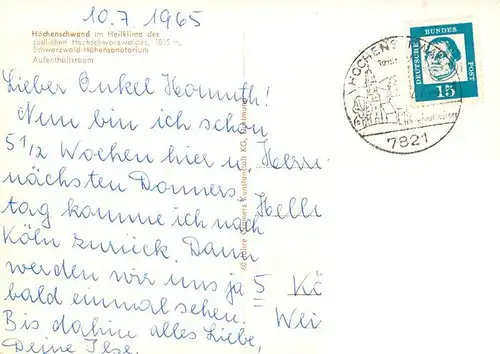 10.7.1965
Höchenschwand im Heilklima des
südlichen Hochschwarzwaldes, 1015 m,
Schwarzwald-Höhensanatorium
Aufenthaltsraum
Lieber Onkel
Nun bin ich schon
5 1/2 Wochen hier u.
nächsten Donners-
tag komme ich nach
Köln zurück. Dann
werden wir uns ja
bald einmal sehen.
Bis dahin alles Liebe,
Deine Ilse.
Kunstanstalt KG, Dortmund
Herrn
Hellm
5 Kö
Wei
DEUTSCHE BUNDES POST
15
7821